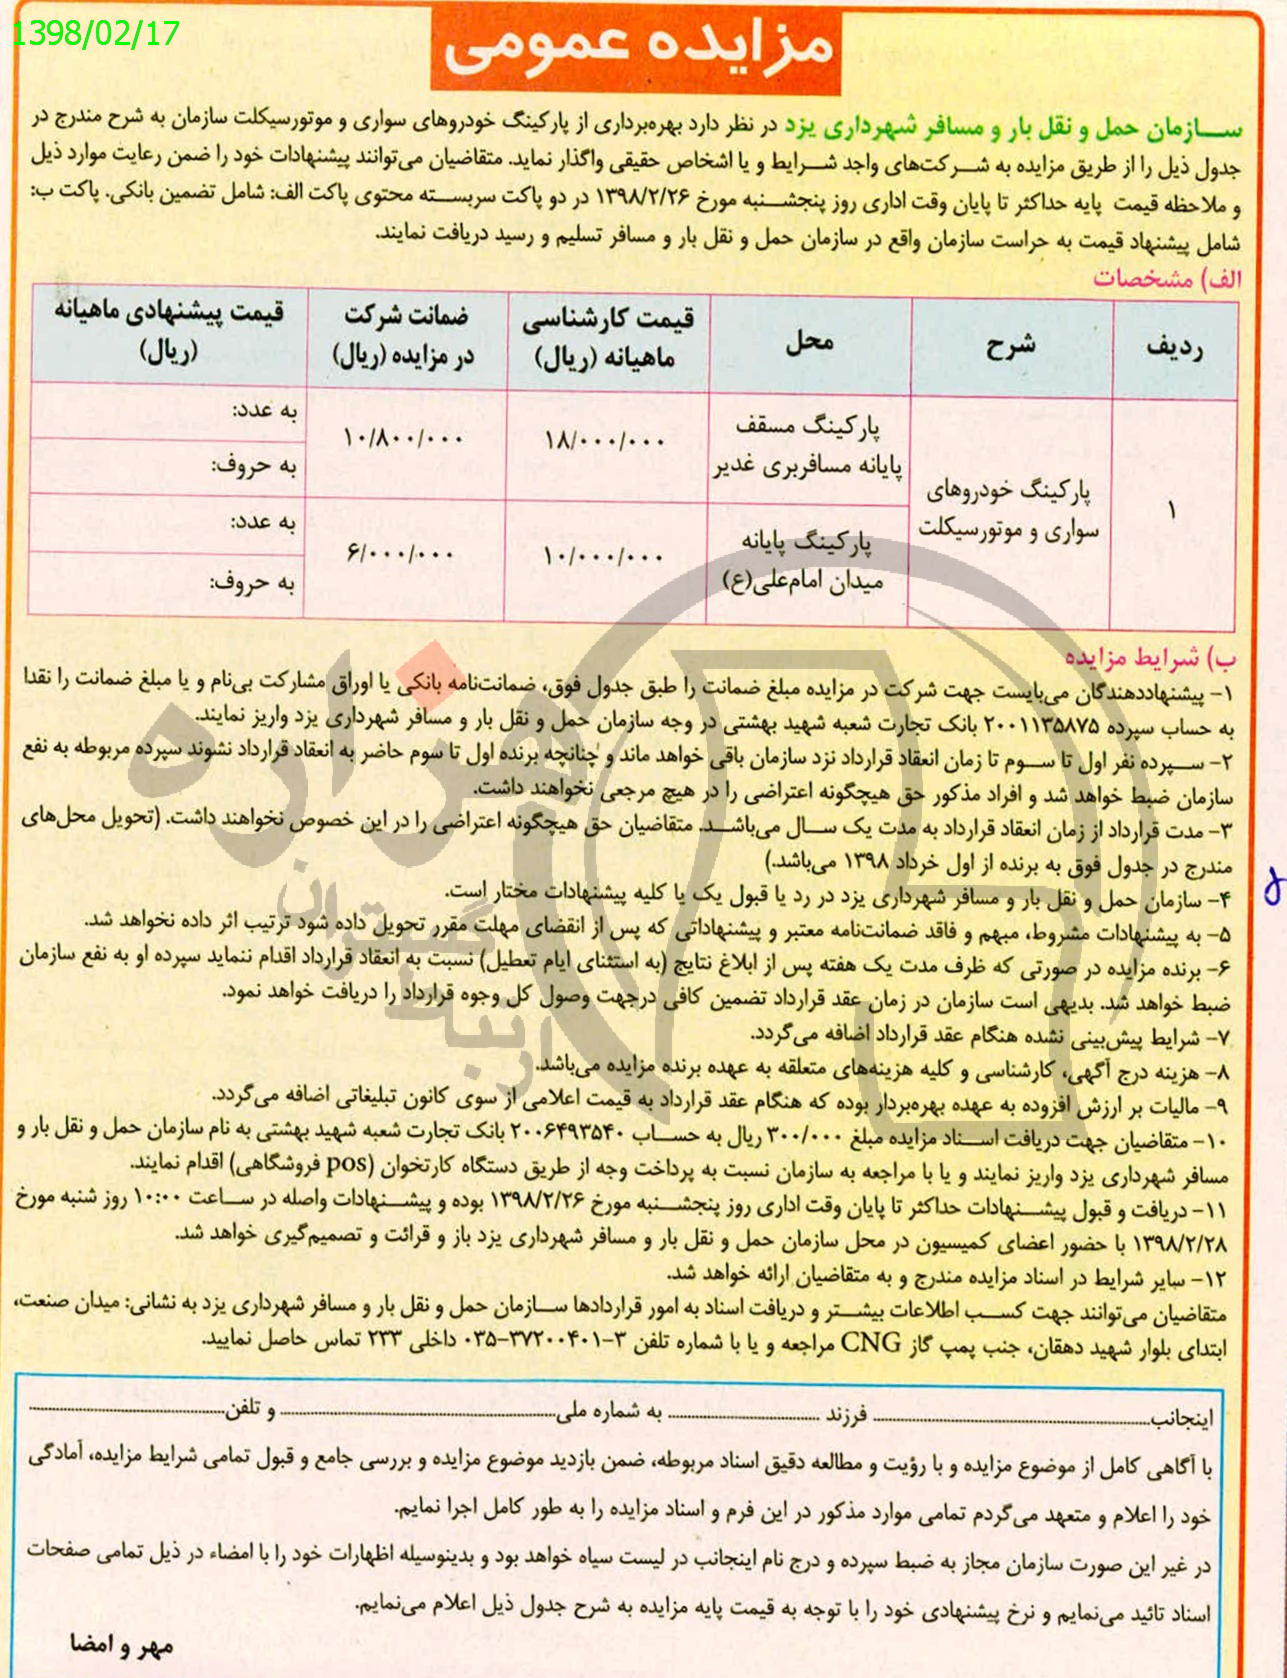 1398/02/17
مزایده عمومی
سازمان حمل و نقل بار و مسافر شهرداری یزد در نظر دارد بهره‌برداری از پارکینگ خودروهای سواری و موتورسیکلت سازمان به شرح مندرج در
جدول ذیل را از طریق مزایده به شرکت‌های واجد شرایط و یا اشخاص حقیقی واگذار نماید. متقاضیان می‌توانند پیشنهادات خود را ضمن رعایت موارد ذیل
و ملاحظه قیمت پایه حداکثر تا پایان وقت اداری روز پنجشنبه مورخ ۱۳۹۸/۲/۲۶ در دو پاکت سربسته محتوی پاکت الف: شامل تضمین بانکی. پاکت ب:
شامل پیشنهاد قیمت به حراست سازمان واقع در سازمان حمل و نقل بار و مسافر تسلیم و رسید دریافت نمایند.
الف) مشخصات
ردیف شرح محل قیمت کارشناسی ماهیانه (ریال) ضمانت شرکت در مزایده (ریال) قیمت پیشنهادی ماهیانه (ریال)
۱ پارکینگ خودروهای سواری و موتورسیکلت
پارکینگ مسقف پایانه مسافربری غدیر ۱۸/۰۰۰/۰۰۰ ۱۰/۸۰۰/۰۰۰ به عدد:
به حروف:
پارکینگ پایانه میدان امام‌علی(ع) ۱۰/۰۰۰/۰۰۰ ۶/۰۰۰/۰۰۰ به عدد:
به حروف:
ب) شرایط مزایده
۱- پیشنهاددهندگان می‌بایست جهت شرکت در مزایده مبلغ ضمانت را طبق جدول فوق، ضمانت‌نامه بانکی یا اوراق مشارکت بی‌نام و یا مبلغ ضمانت را نقدا
به حساب سپرده ۲۰۰۱۱۳۵۸۷۵ بانک تجارت شعبه شهید بهشتی در وجه سازمان حمل و نقل بار و مسافر شهرداری یزد واریز نمایند.
۲- سپرده نفر اول تا سوم تا زمان انعقاد قرارداد نزد سازمان باقی خواهد ماند و چنانچه برنده اول تا سوم حاضر به انعقاد قرارداد نشوند سپرده مربوطه به نفع
سازمان ضبط خواهد شد و افراد مذکور حق هیچگونه اعتراضی را در هیچ مرجعی نخواهند داشت.
۳- مدت قرارداد از زمان انعقاد قرارداد به مدت یک سال می‌باشد. متقاضیان حق هیچگونه اعتراضی را در این خصوص نخواهند داشت. (تحویل محل‌های
مندرج در جدول فوق به برنده از اول خرداد ۱۳۹۸ می‌باشد.)
۴- سازمان حمل و نقل بار و مسافر شهرداری یزد در رد یا قبول یک یا کلیه پیشنهادات مختار است.
۵- به پیشنهادات مشروط، مبهم و فاقد ضمانت‌نامه معتبر و پیشنهاداتی که پس از انقضای مهلت مقرر تحویل داده شود ترتیب اثر داده نخواهد شد.
۶- برنده مزایده در صورتی که ظرف مدت یک هفته پس از ابلاغ نتایج (به استثنای ایام تعطیل) نسبت به انعقاد قرارداد اقدام ننماید سپرده او به نفع سازمان
ضبط خواهد شد. بدیهی است سازمان در زمان عقد قرارداد تضمین کافی درجهت وصول کل وجوه قرارداد را دریافت خواهد نمود.
۷- شرایط پیش‌بینی نشده هنگام عقد قرارداد اضافه می‌گردد.
۸- هزینه درج آگهی، کارشناسی و کلیه هزینه‌های متعلقه به عهده برنده مزایده می‌باشد.
۹- مالیات بر ارزش افزوده به عهده بهره‌بردار بوده که هنگام عقد قرارداد به قیمت اعلامی از سوی کانون تبلیغاتی اضافه می‌گردد.
۱۰- متقاضیان جهت دریافت اسناد مزایده مبلغ ۳۰۰/۰۰۰ ریال به حساب ۲۰۰۶۴۹۳۵۴۰ بانک تجارت شعبه شهید بهشتی به نام سازمان حمل و نقل بار و
مسافر شهرداری یزد واریز نمایند و یا با مراجعه به سازمان نسبت به پرداخت وجه از طریق دستگاه کارتخوان (pos فروشگاهی) اقدام نمایند.
۱۱- دریافت و قبول پیشنهادات حداکثر تا پایان وقت اداری روز پنجشنبه مورخ ۱۳۹۸/۲/۲۶ بوده و پیشنهادات واصله در ساعت ۱۰:۰۰ روز شنبه مورخ
۱۳۹۸/۲/۲۸ با حضور اعضای کمیسیون در محل سازمان حمل و نقل بار و مسافر شهرداری یزد باز و قرائت و تصمیم‌گیری خواهد شد.
۱۲- سایر شرایط در اسناد مزایده مندرج و به متقاضیان ارائه خواهد شد.
متقاضیان می‌توانند جهت کسب اطلاعات بیشتر و دریافت اسناد به امور قراردادها سازمان حمل و نقل بار و مسافر شهرداری یزد به نشانی: میدان صنعت،
ابتدای بلوار شهید دهقان، جنب پمپ گاز CNG مراجعه و یا با شماره تلفن ۳-۳۷۲۰۰۴۰۱-۰۳۵ داخلی ۲۳۳ تماس حاصل نمایید.
اینجانب........ فرزند ........ به شماره ملی........ و تلفن........
با آگاهی کامل از موضوع مزایده و با رؤیت و مطالعه دقیق اسناد مربوطه، ضمن بازدید موضوع مزایده و بررسی جامع و قبول تمامی شرایط مزایده، آمادگی
خود را اعلام و متعهد می‌گردم تمامی موارد مذکور در این فرم و اسناد مزایده را به طور کامل اجرا نمایم.
در غیر این صورت سازمان مجاز به ضبط سپرده و درج نام اینجانب در لیست سیاه خواهد بود و بدینوسیله اظهارات خود را با امضاء در ذیل تمامی صفحات
اسناد تائید می‌نمایم و نرخ پیشنهادی خود را با توجه به قیمت پایه مزایده به شرح جدول ذیل اعلام می‌نمایم.
مهر و امضا